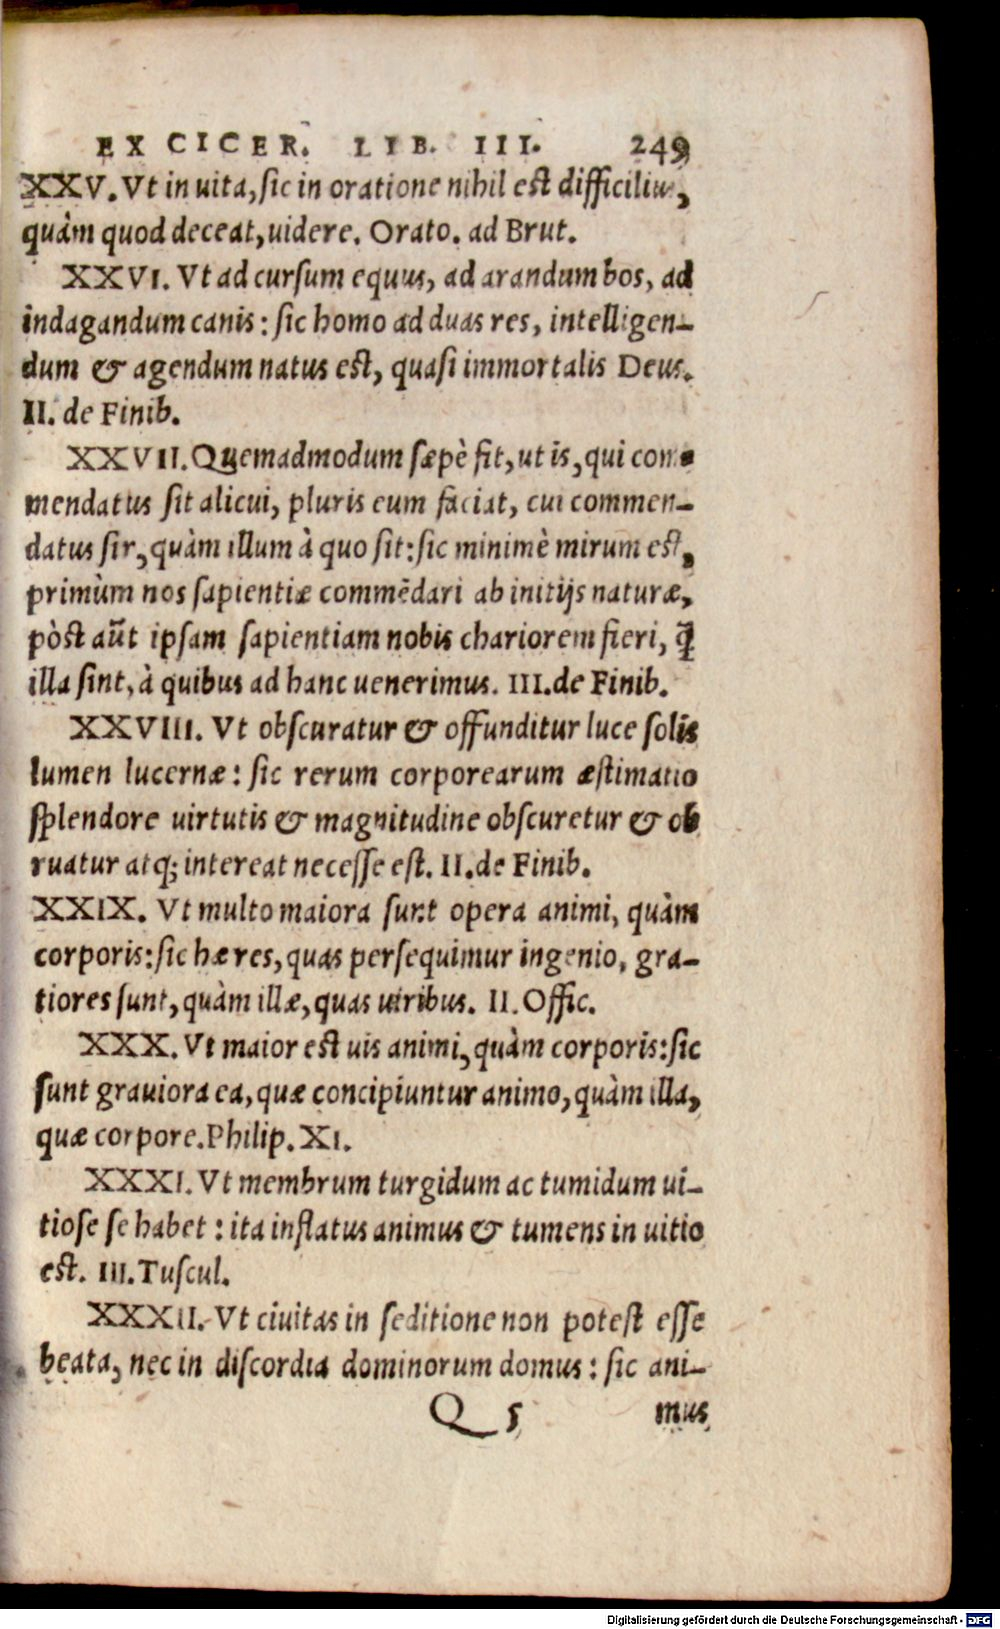 EX CICER. LIB. III. 249
XXV. Ut in uita, sic in oratione nihil est difficilius,
quàm quod deceat, uidere. Orato. ad Brut.
XXVI. Ut ad cursum equus, ad arandum bos, ad
indagandum canis: sic homo ad duas res, intelligen-
dum & agendum natus est, quasi immortalis Deus.
II. de Finib.
XXVII. Quemadmodum sæpè fit, ut is, qui com-
mendatus sit alicui, pluris eum faciat, cui commen-
datus sir, quàm illum à quo sit: sic minimè mirum est,
primùm nos sapientiæ commēdari ab initijs naturæ,
pòst aūt ipsam sapientiam nobis chariorem fieri, q̄
illa sint, à quibus ad hanc uenerimus. III. de Finib.
XXVIII. Ut obscuratur & offunditur luce solis
lumen lucernæ: sic rerum corporearum æstimatio
splendore uirtutis & magnitudine obscuretur & ob
ruatur atq; intereat necesse est. II. de Finib.
XXIX. Ut multo maiora sunt opera animi, quàm
corporis: sic hæ res, quas persequimur ingenio, gra-
tiores sunt, quàm illæ, quas uiribus. II. Offic.
XXX. Ut maior est uis animi, quàm corporis: sic
sunt grauiora ea, quæ concipiuntur animo, quàm illa,
quæ corpore. Philip. XI.
XXXI. Ut membrum turgidum ac tumidum ui-
tiose se habet: ita inflatus animus & tumens in uitio
est. III. Tuscul.
XXXII. Ut ciuitas in seditione non potest esse
beata, nec in discordia dominorum domus: sic ani-
Q 5 mus
Digitalisierung gefördert durch die Deutsche Forschungsgemeinschaft - DFG